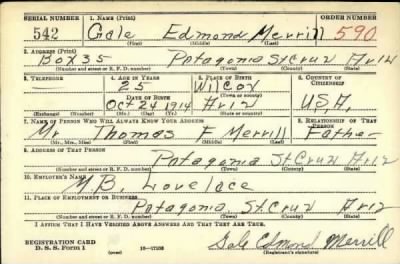 SERIAL NUMBER 1. NAME (Print) ORDER NUMBER
542 Gale Edmond Merrill 590
(First) (Middle) (Last)
2. ADDRESS (Print)
Box 35 Patagonia St. Cruz Ariz
(Number and street or R. F. D. number) (Town) (County) (State)
3. TELEPHONE 4. AGE IN YEARS 5. PLACE OF BIRTH 6. COUNTRY OF CITIZENSHIP
25 Wilcox
DATE OF BIRTH (Town or county)
Oct 24 1914 Ariz U.S.A.
(Exchange) (Number) (Mo.) (Day) (Yr.) (State or country)
7. NAME OF PERSON WHO WILL ALWAYS KNOW YOUR ADDRESS 8. RELATIONSHIP OF THAT PERSON
Mr Thomas F Merrill Father
(Mr., Mrs., Miss) (First) (Middle) (Last)
9. ADDRESS OF THAT PERSON
Patagonia St. Cruz Ariz
(Number and street or R. F. D. number) (Town) (County) (State)
10. EMPLOYER'S NAME
M.B. Lovelace
11. PLACE OF EMPLOYMENT OR BUSINESS
Patagonia St. Cruz Ariz
(Number and street or R. F. D. number) (Town) (County) (State)
I AFFIRM THAT I HAVE VERIFIED ABOVE ANSWERS AND THAT THEY ARE TRUE.
REGISTRATION CARD
D. S. S. Form 1 (over) Gale Edmond Merrill
(Registrant's signature)